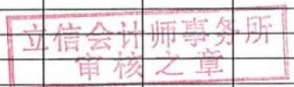 立信会计师事务所
审核之章